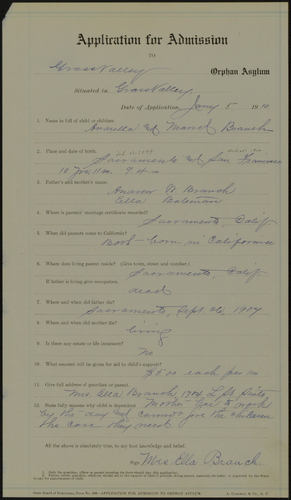 Application for Admission
TO
Grass Valley Orphan Asylum
Situated in Grass Valley
Date of Application Jany 5 1910
1. Name in full of child or children:
Branch
2. Place and date of birth.
Sacramento San Francisco
3. Father's and mother's name:
Andrew Branch
Ella Bateman
4. Where is parents' marriage certificate recorded?
Sacramento, Calif
5. When did parents come to California?
Both born in California
6. Where does living parent reside? (Give town, street and number.)
Sacramento, Calif
If father is living give occupation.
dead
7. Where and when did father die?
Sacramento, Sept 26, 1907
8. Where and when did mother die?
living
9. Is there any estate or life insurance?
No
10. What amount will be given for aid to child's support?
$5.00 each per mo
11. Give full address of guardian or parent.
Mrs. Ella Branch, 1704
12. State fully reasons why child is
Mother goes to work
by the day and cannot give the children
the care they need.
All the above is absolutely true, to my best knowledge and belief.
Mrs. Ella Branch.